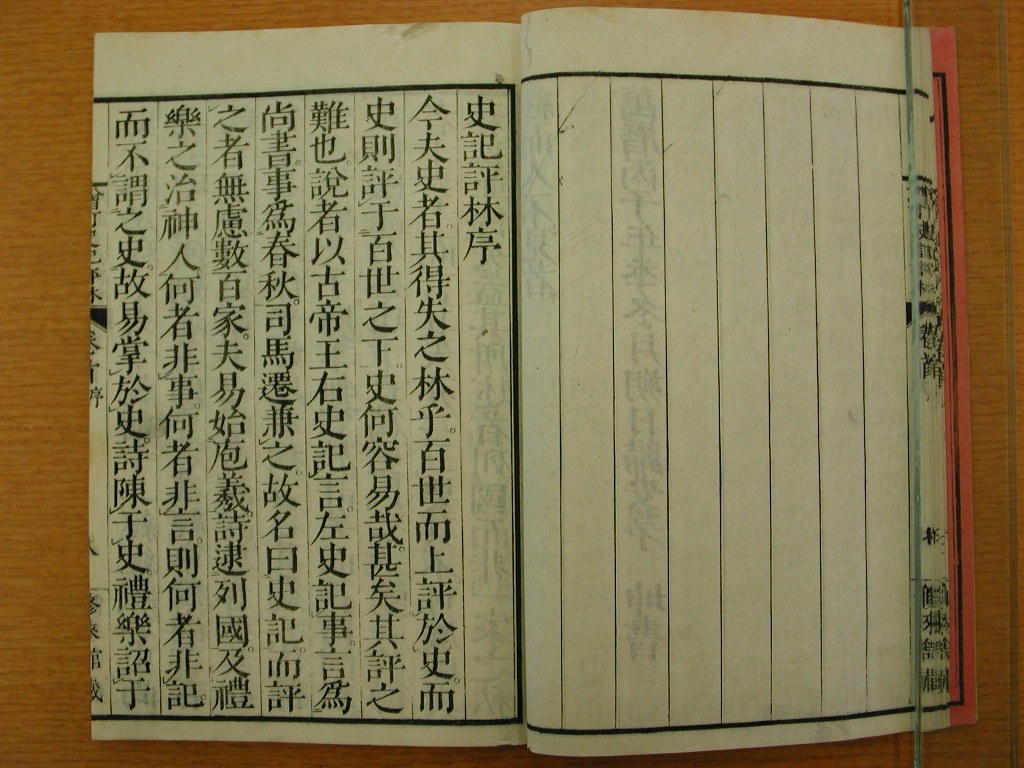 史記評林序
今夫史者其得失之林乎百世而上評於史而
史則評于百世之下史何容易哉甚矣其評之
難也說者以古帝王右史記言左史記事言爲
尚書事爲春秋司馬遷兼之故名曰史記而評
之者無慮數百家夫易始庖羲詩逮列國及禮
樂之治神人何者非事何者非言則何者非記
而不謂之史故易掌於史詩陳于史禮樂詔于